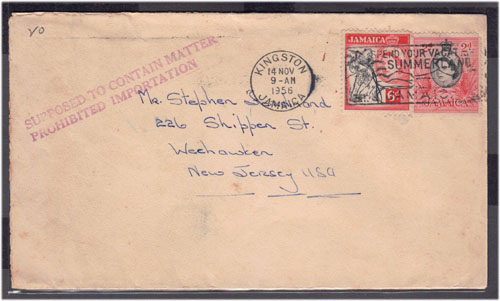 VO
SUPPOSED TO CONTAIN MATTER
PROHIBITED IMPORTATION
KINGSTON
14 NOV
9-AM
1956
JAMAICA
SPEND YOUR VACATION
SUMMERLAND
JAMAICA
6D
2D
JAMAICA
Mr. Stephen
226 Shippen St.
Weehawken
New Jersey USA